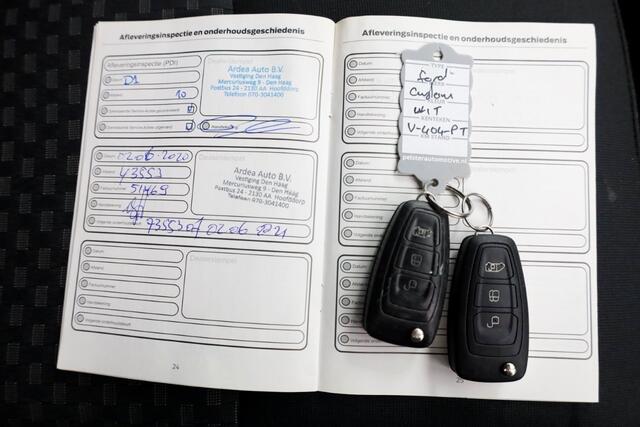 Afleveringsinspectie en onderhoudsgeschiedenis
Afleveringsinspectie (PDI)
Datum D1
Afstand 10
Handtekening
Ardea Auto B.V.
Vestiging Den Haag
Mercuriusweg 9 - Den Haag
Postbus 24 - 2130 AA Hoofddorp
Telefoon 070-3041400
Datum 02.06.2020
Afstand 43553
Factuurnummer 51469
Handtekening
Volgende onderhoudsbeurt 73553 of 02.06.2021
Dealerstempel
Ardea Auto B.V.
Vestiging Den Haag
Mercuriusweg 9 - Den Haag
Postbus 24 - 2130 AA Hoofddorp
Telefoon 070-3041400
Datum
Afstand
Factuurnummer
Handtekening
Volgende onderhoudsbeurt
Dealerstempel
24
Afleveringsinspectie en onderhoudsgeschiedenis
Datum
Afstand
Factuurnummer
Handtekening
Volgende
Datum
Afstand
Factuurnummer
Handtekening
Volgende
Datum
Afstand
Volgende
TYPE
Ford
Custom
KLEUR
WIT
KENTEKEN
V-404-PT
KM STAND
pelsterautomotive.nl